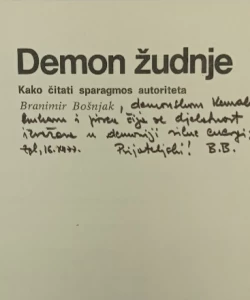 Demon žudnje
Kako čitati sparagmos autoriteta
Branimir Bošnjak, demonskom Kemalu
i piscu čija se djelatnost
u demoniji silne energije
16. XI 77. Prijateljski! B.B.